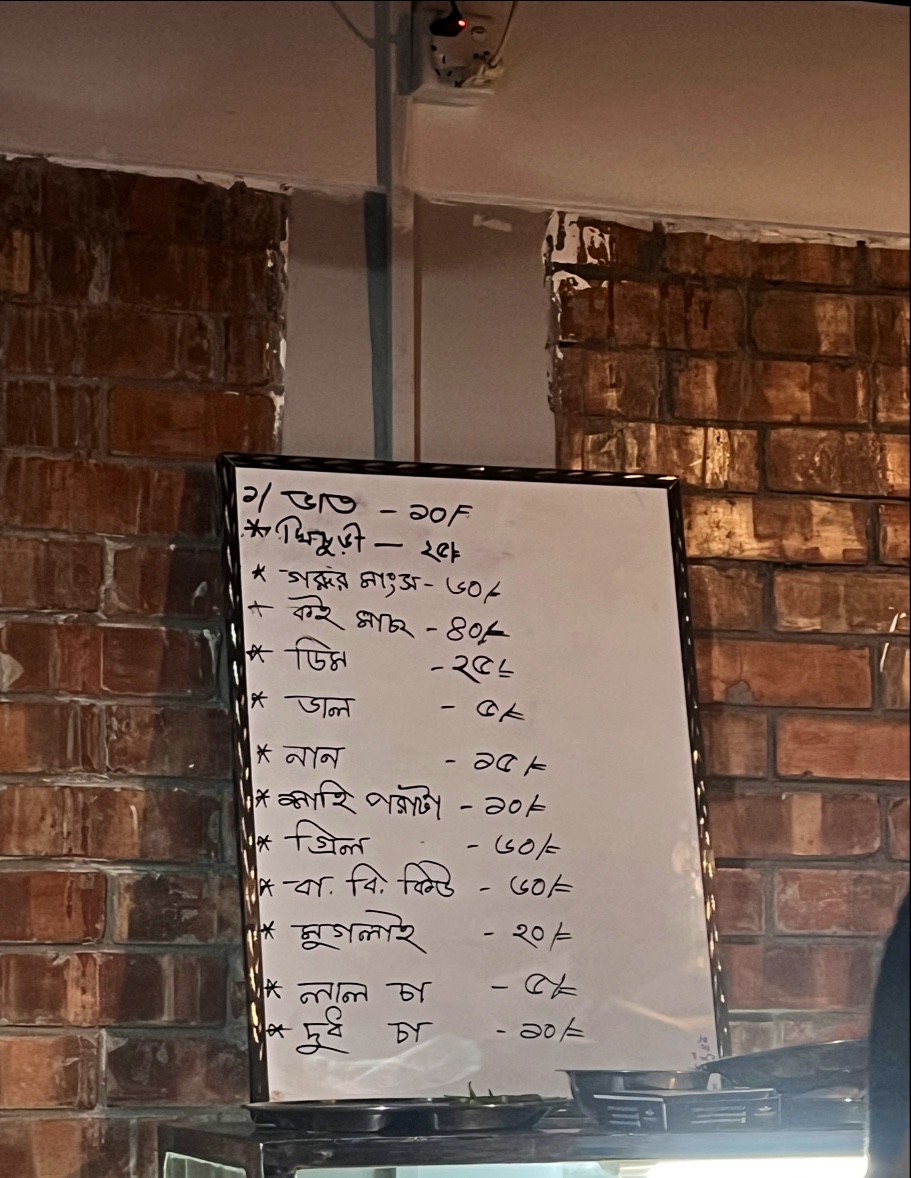 ১/ ভাত - ১০/=
* খিচুড়ী - ২৫/=
* গরুর মাংস - ৬০/=
* কই মাছ - ৪০/=
* ডিম - ২৫/=
* ডাল - ৫/=
* নান - ১৫/=
* লাহি পরাটা - ১০/=
* গ্রিল - ৬০/=
* বা. বি. কিউ - ৬০/=
* মুগলাই - ২০/=
* লাল চা - ৫/=
* দুধ চা - ১০/=